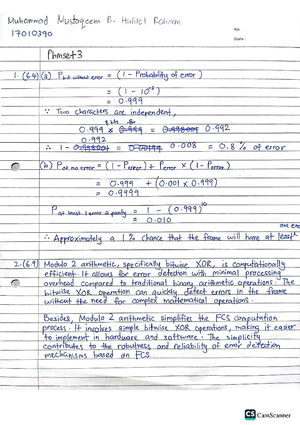 Muhammad Mustaqeem B. Halilol Rahman
No.
17010390
Date
Phmset3
1. (6.4) (a) P bit without error = (1 - Probability of error)
= (1 - 10⁻³)
= 0.999
∴ Two characters are independent,
0.999 × = 0.992
0.992
∴ 1 - = 0.008 = 0.8 % of error
(b) P at no error = (1 - P error) + P error × (1 - P error)
= 0.999 + (0.001 × 0.999)
= 0.9999
P at least 1 error 2 parity = 1 - (0.999)¹⁰
= 0.010
one error
∴ Approximately a 1 % chance that the frame will have at least
2. (6.9) Modulo 2 arithmetic, specifically bitwise XOR, is computationally
efficient. It allows for error detection with minimal processing
overhead compared to traditional binary arithmetic operations. The
bitwise XOR operation can quickly detect errors in the frame
without the need for complex mathematical operations.
Besides, Modulo 2 arithmetic simplifies the FCS computation
process. It involves simple bitwise XOR operations, making it easier
to implement in hardware and software. The simplicity
contributes to the robustness and reliability of error detection
mechanisms based on FCS.
CS CamScanner